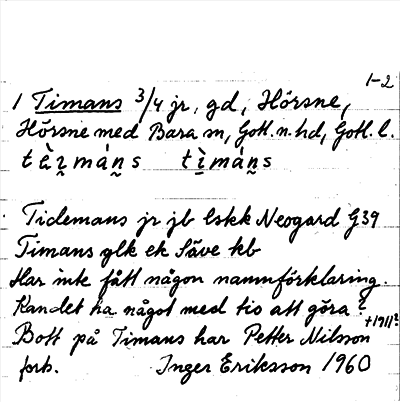 1-2
1 Timans 3/4 jr, gd, Hörsne,
Hörsne med Bara sn, Gotl. n. hd, Gotl. l.
Tidemans jr jb lskk Neogard G39
Timans glk ek Säve kb
Har inte fått någon namnförklaring.
Kan det ha något med tio att göra?
Bott på Timans har Petter Nilsson †1911?
förb. Inger Eriksson 1960